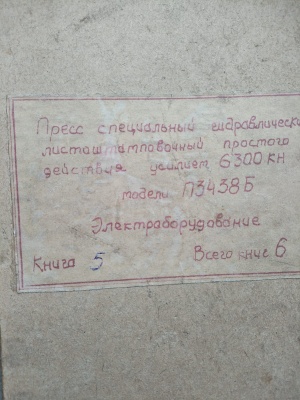 Пресс специальный гидравлическ
листоштамповочный простого
действия усилием 6300 кн
модели П3438Б
Электраборудование
Книга 5 Всего книг 6